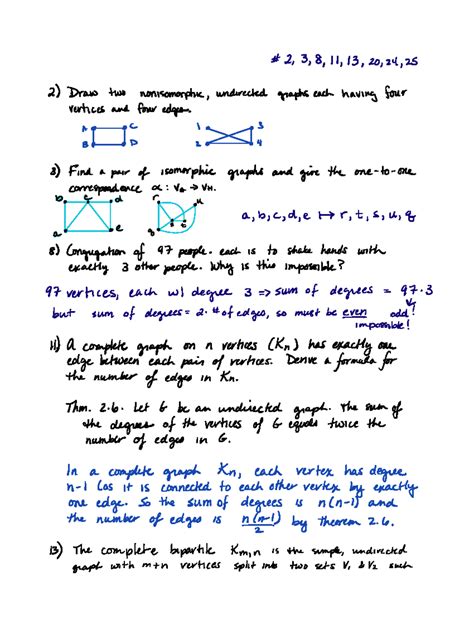 # 2, 3, 8, 11, 13, 20, 24, 25
2) Draw two nonisomorphic, undirected graphs each having four
vertices and four edges.
A C
B D
1 3
2 4
3) Find a pair of isomorphic graphs and give the one-to-one
correspondence α: V_G → V_H.
b c d
a e
r u
q
a, b, c, d, e ↦ r, t, s, u, q
8) Congregation of 97 people. each is to shake hands with
exactly 3 other people. Why is this impossible?
97 vertices, each w/ degree 3 ⇒ sum of degrees = 97·3
but sum of degrees = 2·# of edges, so must be even odd!
impossible!
11) A complete graph on n vertices (Kn) has exactly one
edge between each pair of vertices. Derive a formula for
the number of edges in Kn.
Thm. 2.6. Let G be an undirected graph. The sum of
the degrees of the vertices of G equals twice the
number of edges in G.
In a complete graph Kn, each vertex has degree
n-1 cos it is connected to each other vertex by exactly
one edge. So the sum of degrees is n(n-1) and
the number of edges is n(n-1)/2 by theorem 2.6.
13) The complete bipartite Km,n is the simple, undirected
graph with m+n vertices split into two sets V1 & V2 such